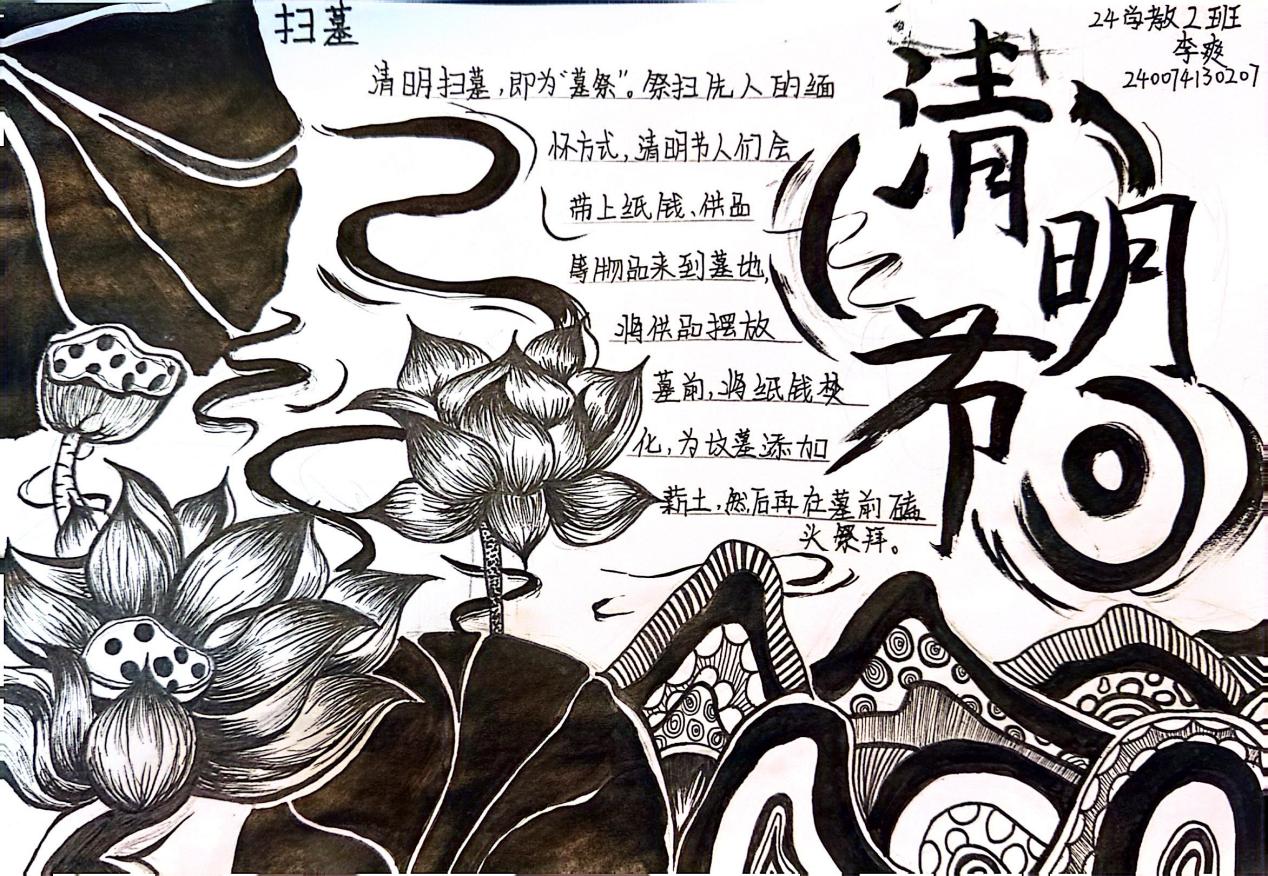 扫墓
24学教2班
李爽
240074130207
清明节
清明扫墓,即为"墓祭"。祭扫先人的缅
怀方式,清明节人们会
带上纸钱、供品
等物品来到墓地,
将供品摆放
墓前,将纸钱焚
化,为坟墓添加
薪土,然后再在墓前磕
头祭拜。